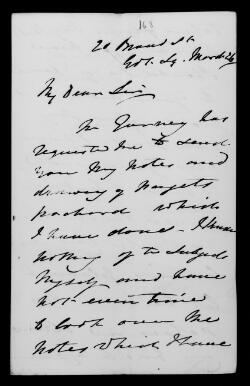 168
20 Broad St
Gol. Sq. March 26
My Dear Sir
Mr Gurney has
requested me to send
you my notes and
drawing of
which
I have done - I know
nothing of the subject
myself and have
not even time
to look over the
notes which I have